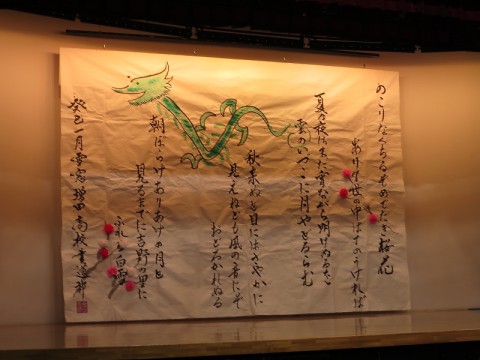 のこりなくちるぞめでたき桜花
ありて世の中はてのうければ
夏の夜はまだ宵ながら明けぬるを
雲のいづこに月やどるらむ
秋来ぬと目にはさやかに
見えねども風の音にぞ
おどろかれぬる
朝ぼらけありあけの月と
見るまでに吉野の里に
ふれる白雪
癸巳一月 増田高校書道部